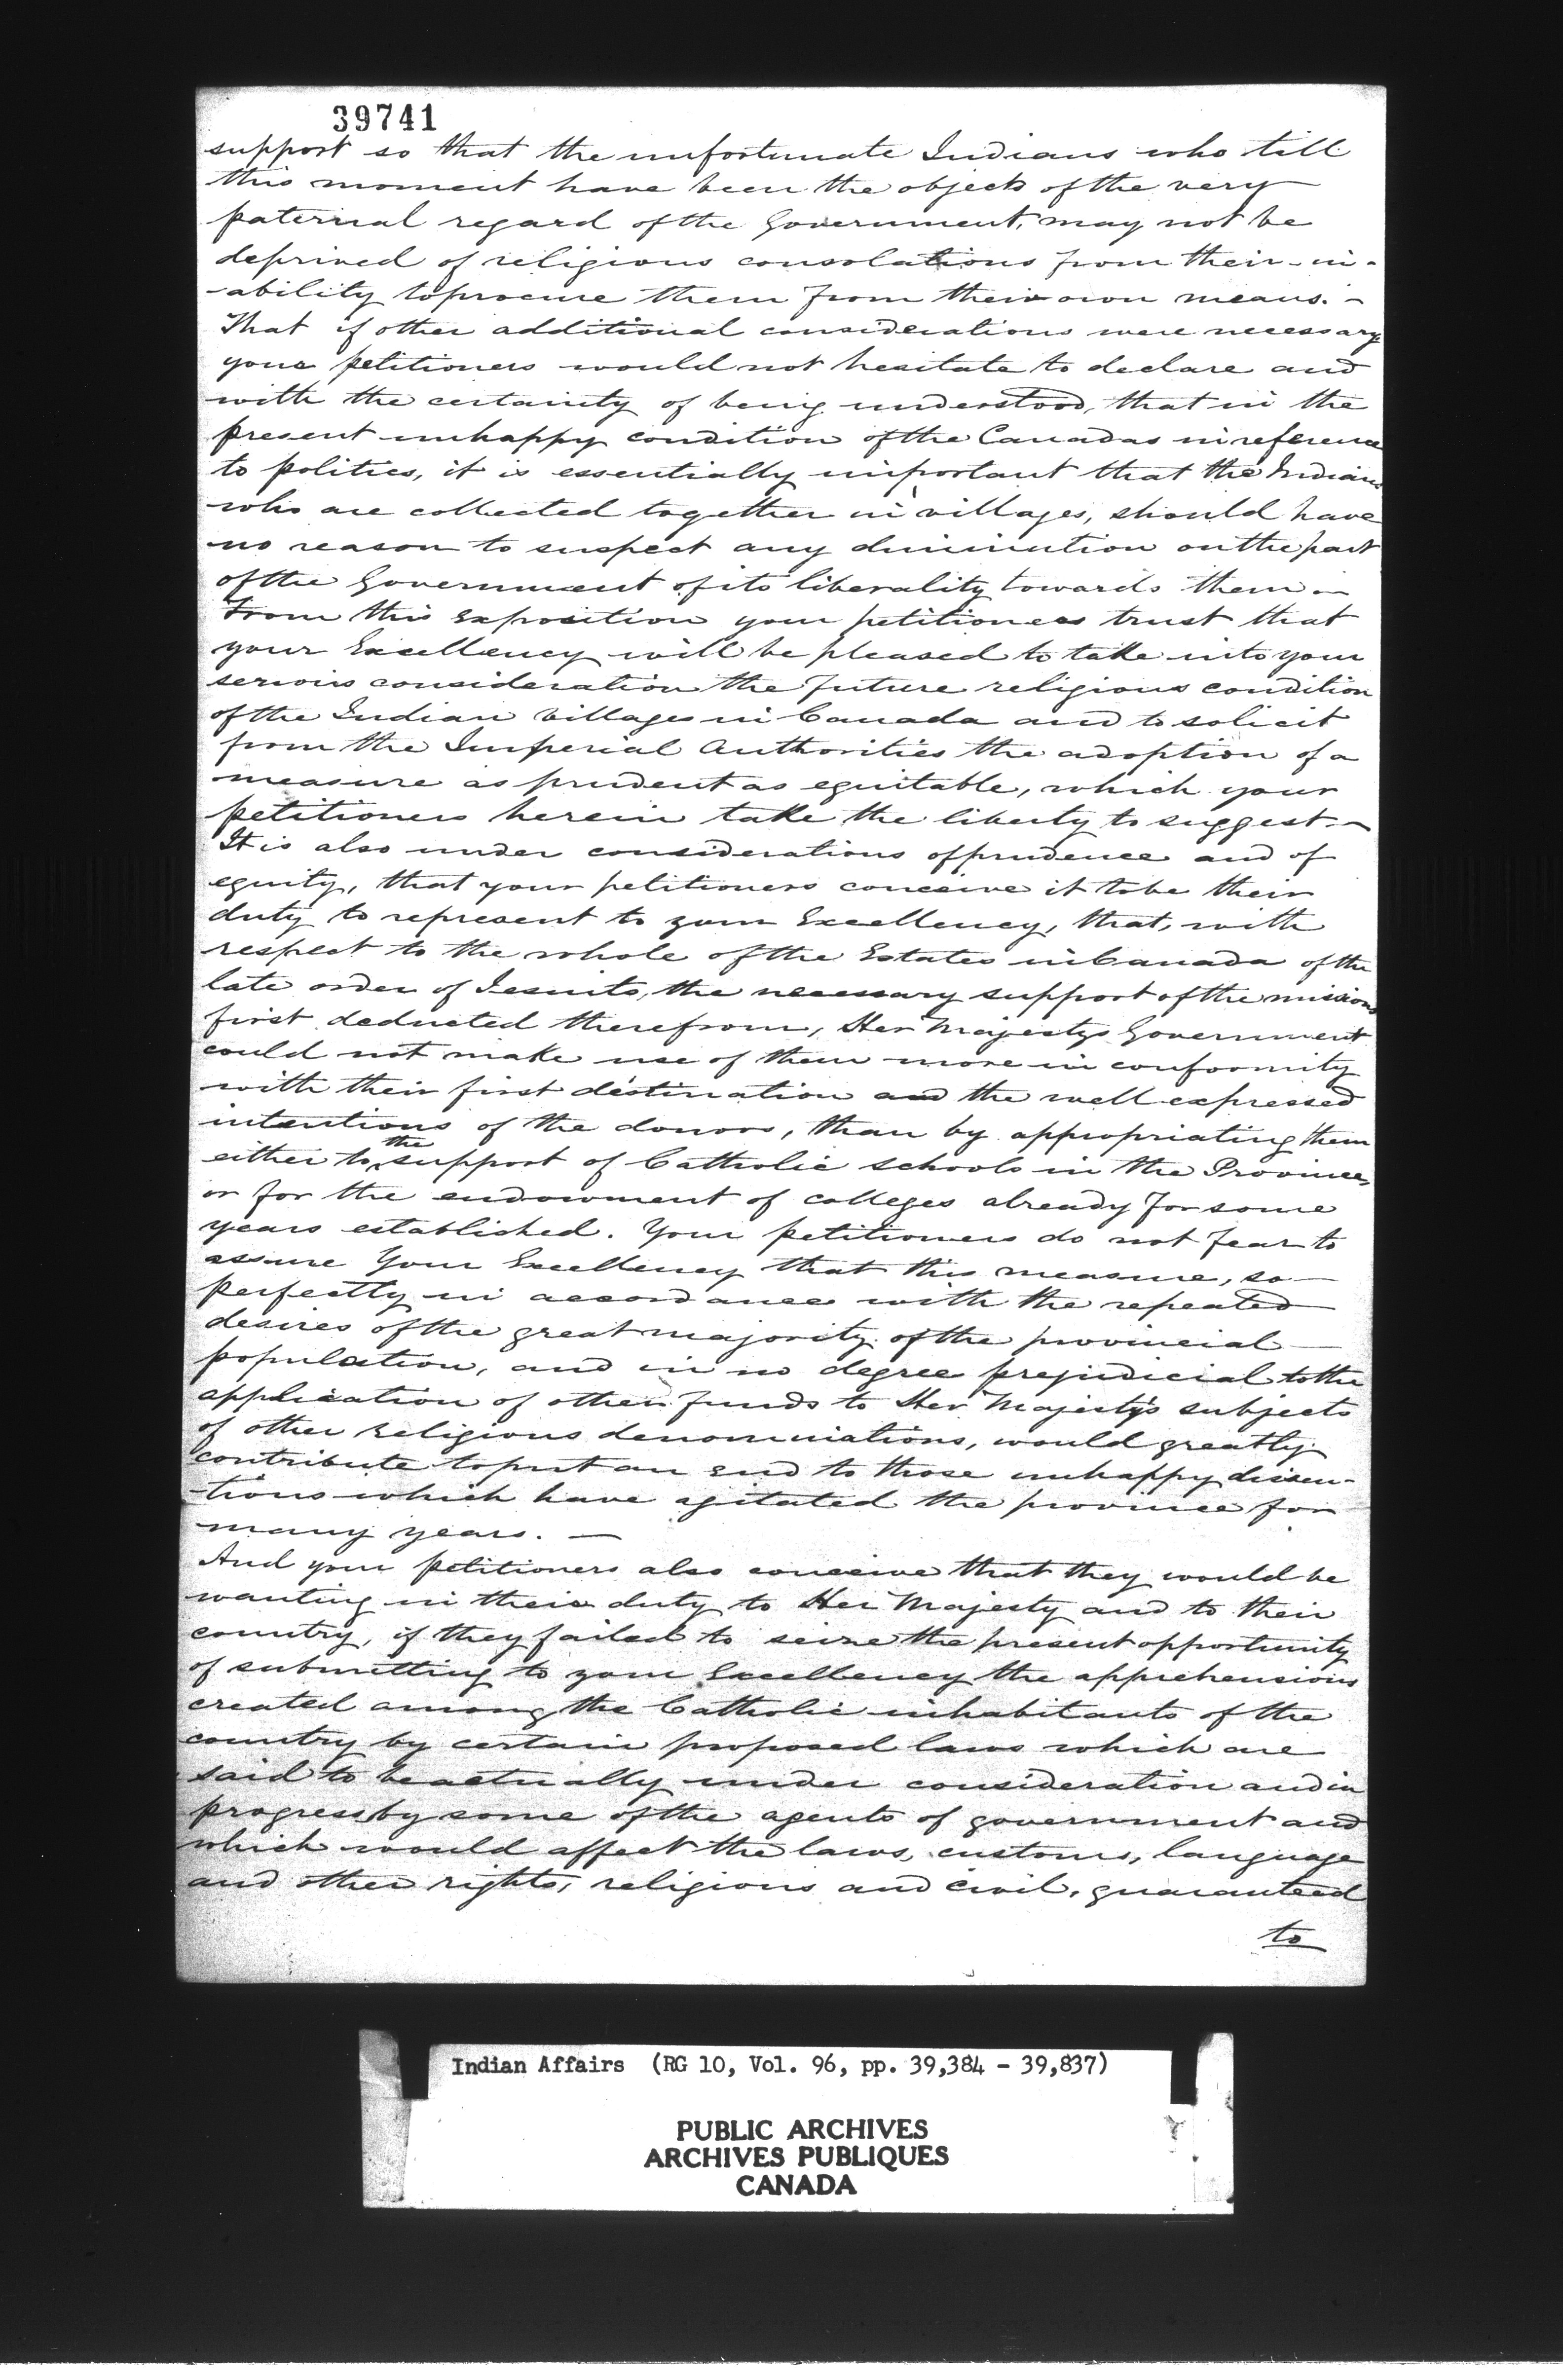 39741
support so that the unfortunate Indians who till
this moment have been the objects of the very
paternal regard of the Government, may not be
deprived of religious consolations from their in-
-ability to procure them from their own means. -
That if other additional considerations were necessary
your petitioners would not hesitate to declare and
with the certainty of being understood, that in the
present unhappy condition of the Canadas in reference
to politics, it is essentially important that the Indians
who are collected together in villages, should have
no reason to suspect any diminution on the part
of the Government of its liberality towards them -
From this exposition your petitioners trust that
your Excellency will be pleased to take into your
serious consideration the future religious condition
of the Indian villages in Canada and to solicit
from the Imperial Authorities the adoption of a
measure as prudent as equitable, which your
petitioners herein take the liberty to suggest. -
It is also under considerations of prudence and of
equity, that your petitioners conceive it to be their
duty to represent to your Excellency, that, with
respect to the whole of the Estates in Canada of the
late order of Jesuits, the necessary support of the missions
first deducted therefrom, Her Majestys Government
could not make use of them more in conformity
with their first destination and the well expressed
intentions of the donors, than by appropriating them
either to the support of Catholic schools in the Province,
or for the endowment of colleges already for some
years established. Your petitioners do not fear to
assure Your Excellency that this measure, so -
perfectly in accordance with the repeated
desires of the great majority of the provincial -
population, and in no degree prejudicial to the
application of other funds to Her Majesty's subjects
of other religious denominations, would greatly
contribute to put an end to those unhappy dissen-
-tions which have agitated the province for
many years. -
And your petitioners also conceive that they would be
wanting in their duty to Her Majesty and to their
country, if they failed to seize the present opportunity
of submitting to your Excellency the apprehensions
created among the Catholic inhabitants of the
country by certain proposed laws which are
said to be actually under consideration and in
progress by some of the agents of government and
which would affect the laws, customs, language
and other rights, religious and civil, guaranteed
to
Indian Affairs (RG 10, Vol. 96, pp. 39,384 - 39,837)
PUBLIC ARCHIVES
ARCHIVES PUBLIQUES
CANADA